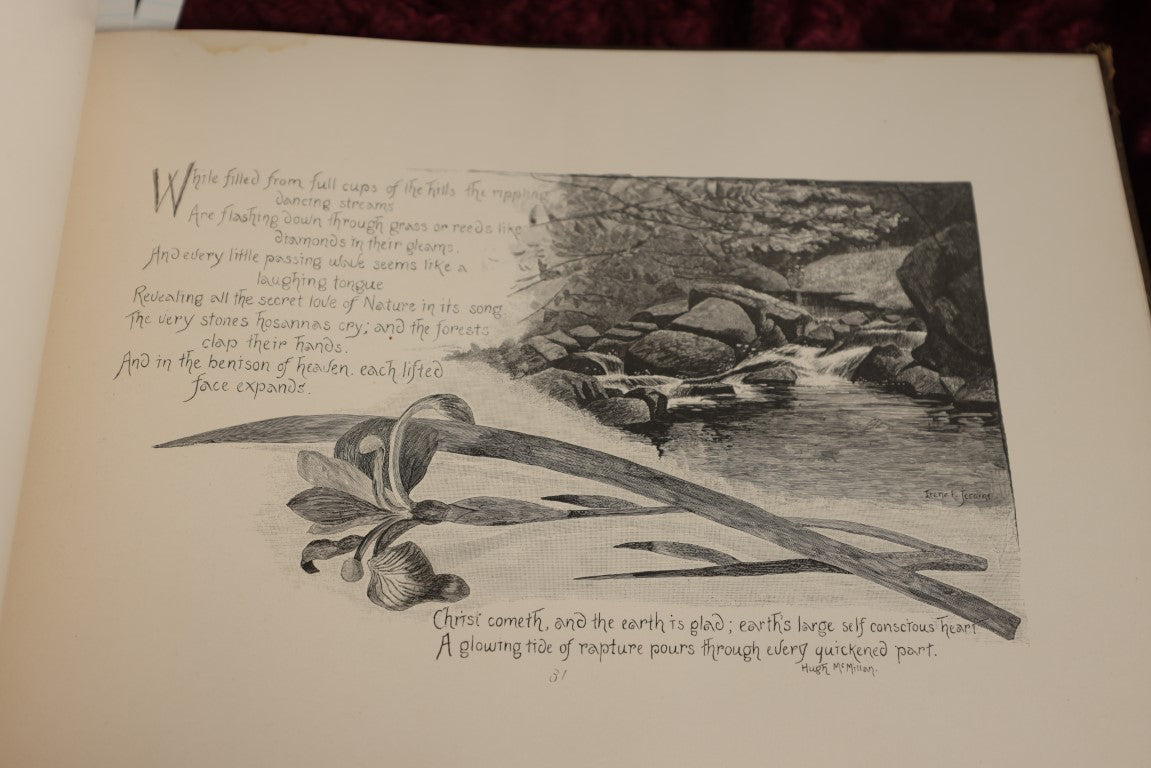 While filled from full cups of the hills the rippling
dancing streams
Are flashing down through grass or reeds like
diamonds in their gleams.
And every little passing wave seems like a
laughing tongue
Revealing all the secret love of Nature in its song
The very stones hosannas cry; and the forests
clap their hands.
And in the benison of heaven. each lifted
face expands.
Irene E. Jerome
Christ cometh, and the earth is glad; earth's large self conscious heart
A glowing tide of rapture pours through every quickened part.
Hugh McMillan.
31